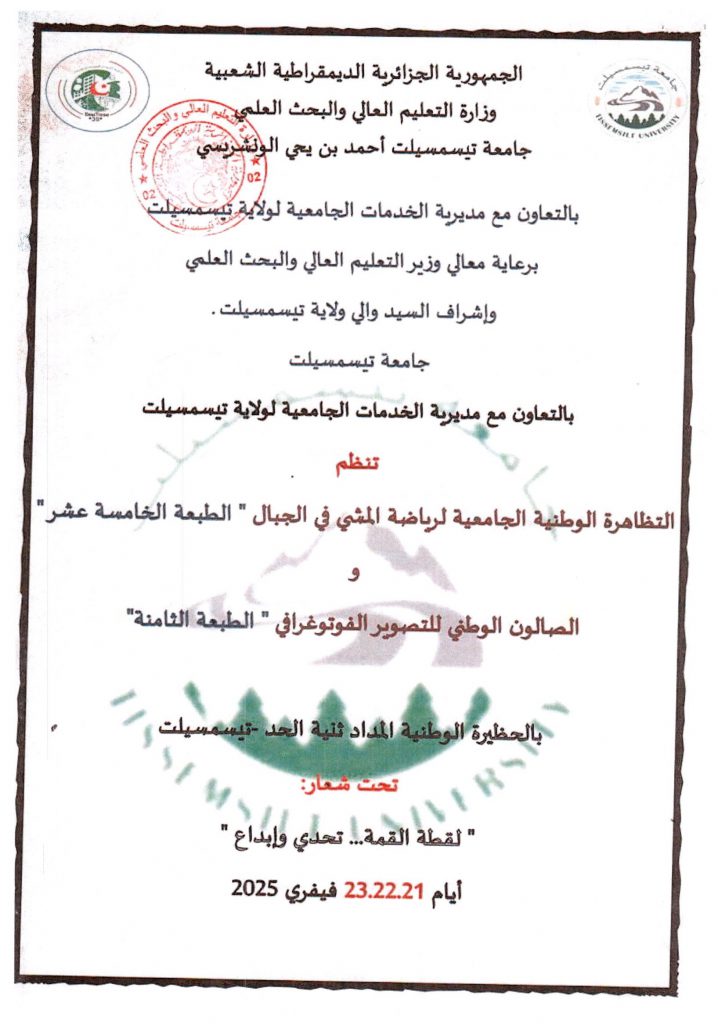 الجمهورية الجزائرية الديمقراطية الشعبية
وزارة التعليم العالي والبحث العلمي
جامعة تيسمسيلت أحمد بن يحي الونشريسي
جامعة تيسمسيلت
TISSEMSILT UNIVERSITY
وزارة التعليم العالي والبحث العلمي
02
02
جامعة تيسمسيلت
بالتعاون مع مديرية الخدمات الجامعية لولاية تيسمسيلت
برعاية معالي وزير التعليم العالي والبحث العلمي
وإشراف السيد والي ولاية تيسمسيلت.
جامعة تيسمسيلت
بالتعاون مع مديرية الخدمات الجامعية لولاية تيسمسيلت
تنظم
التظاهرة الوطنية الجامعية لرياضة المشي في الجبال " الطبعة الخامسة عشر "
و
الصالون الوطني للتصوير الفوتوغرافي " الطبعة الثامنة"
بالحظيرة الوطنية المداد ثنية الحد -تيسمسيلت
تحت شعار:
" لقطة القمة... تحدي وإبداع "
أيام 23.22.21 فيفري 2025
جامعة تيسمسيلت
TISSEMSILT UNIVERSITY